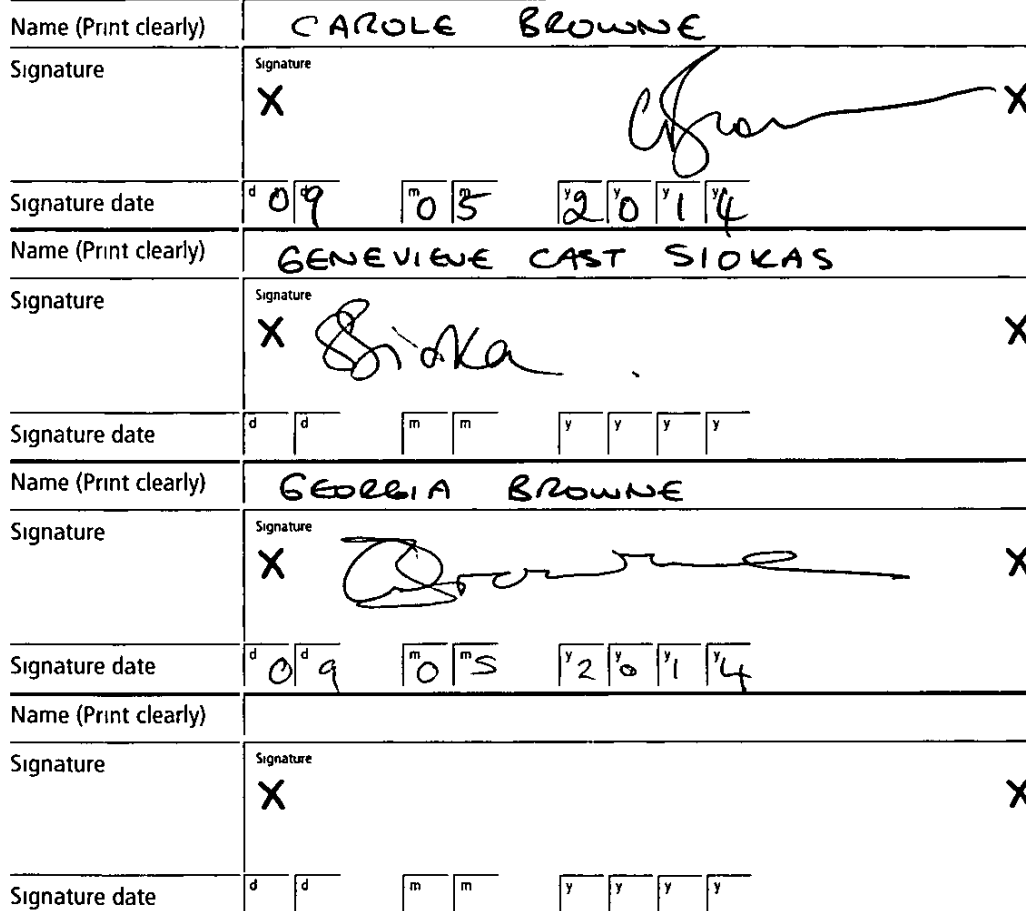 Name (Print clearly) CAROLE BROWNE
Signature Signature
X X
Signature date d 0 d 9 m 0 m 5 y 2 y 0 y 1 y 4
Name (Print clearly) GENEVIEVE CAST SIOKAS
Signature Signature
X Sioka X
Signature date d d m m y y y y
Name (Print clearly) GEORGIA BROWNE
Signature Signature
X X
Signature date d 0 d 9 m 0 m 5 y 2 y 0 y 1 y 4
Name (Print clearly)
Signature Signature
X X
Signature date d d m m y y y y